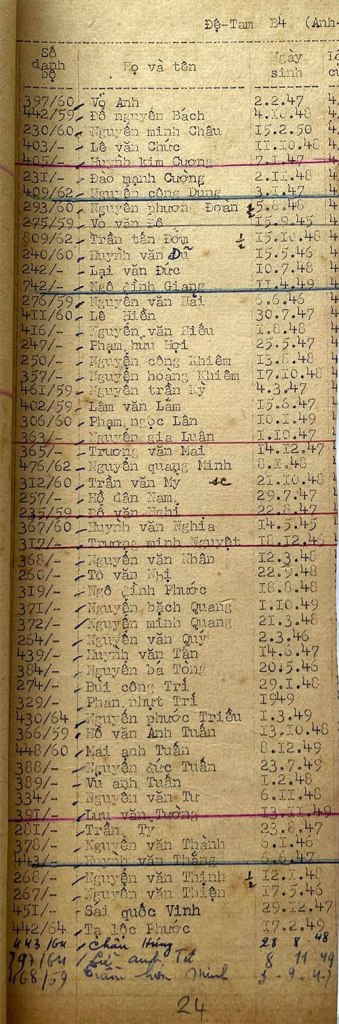 Đệ-Tam B4 (Anh-
Số danh bộ Họ và tên Ngày sinh
397/60 - Võ Anh 2.2.47
442/59 - Đỗ nguyên Bách 4.10.48
230/60 - Nguyễn minh Châu 15.2.50
403/- - Lê văn Chức 11.10.48
405/- - Huỳnh kim Cương 7.1.47
231/- - Đào mạnh Cường 2.11.48
409/62 - Nguyễn công Dung 3.1.47
293/60 - Nguyễn phương Đoàn ½ 5.8.48
275/59 - Võ văn Đô 15.9.45
809/62 - Trần tấn Đởm ½ 15.10.48
240/60 - Huỳnh văn Dũ 15.5.46
242/- - Lại văn Đức 10.7.48
742/- - Ngô đình Giang 11.4.49
276/59 - Nguyễn văn Hai 6.6.46
411/60 - Lê Hiền 30.7.47
416/- - Nguyễn văn Hiếu 1.8.48
247/- - Phạm hữu Hợi 25.5.47
250/- - Nguyễn công Khiêm 13.8.48
357/- - Nguyễn hoàng Khiêm 17.10.48
461/59 - Nguyễn trần Kỳ 4.3.47
402/59 - Lâm văn Lắm 15.6.47
306/60 - Phạm ngọc Lân 18.1.49
363/- - Nguyễn gia Luân 1.10.47
365/- - Trương văn Mai 14.12.47
476/62 - Nguyễn quang Minh 8.1.48
312/60 - Trần văn My sc 21.10.48
257/- - Hồ dân Nam 29.7.47
235/59 - Đỗ văn Nghi 22.8.47
367/60 - Huỳnh văn Nghĩa 14.5.45
317/- - Trương minh Nguyệt 18.12.45
368/- - Nguyễn văn Nhân 12.3.48
260/- - Tô văn Nhị 22.9.48
319/- - Ngô đình Phước 18.8.48
371/- - Nguyễn bạch Quang 1.10.49
372/- - Nguyễn minh Quang 21.3.48
264/- - Nguyễn văn Quý 2.3.46
439/- - Huỳnh văn Tân 14.6.47
384/- - Nguyễn bá Tòng 20.5.46
274/- - Bùi công Trí 29.1.48
329/- - Phan nhựt Trí 1949
430/64 - Nguyễn phước Triều 1.3.49
366/59 - Hồ văn Anh Tuấn 13.10.48
448/60 - Mai anh Tuấn 8.12.49
388/- - Nguyễn đức Tuấn 23.7.49
389/- - Vũ anh Tuấn 1.2.48
334/- - Nguyễn văn Tư 6.11.48
391/- - Lưu văn Tường 13.11.49
281/- - Trần Ty 23.8.47
378/- - Nguyễn văn Thành 6.1.46
443/- - Huỳnh văn Thắng 6.6.47
268/- - Nguyễn văn Thịnh ½ 12.1.48
267/- - Nguyễn văn Thiện 17.5.46
451/- - Sái quốc Vinh 29.12.47
442/64 - Tạ lộc Phước 17.2.49
443/64 - Châu Hùng 28 8 .48
797/64 - anh Tú 8 11 49
468/59 - Minh
24